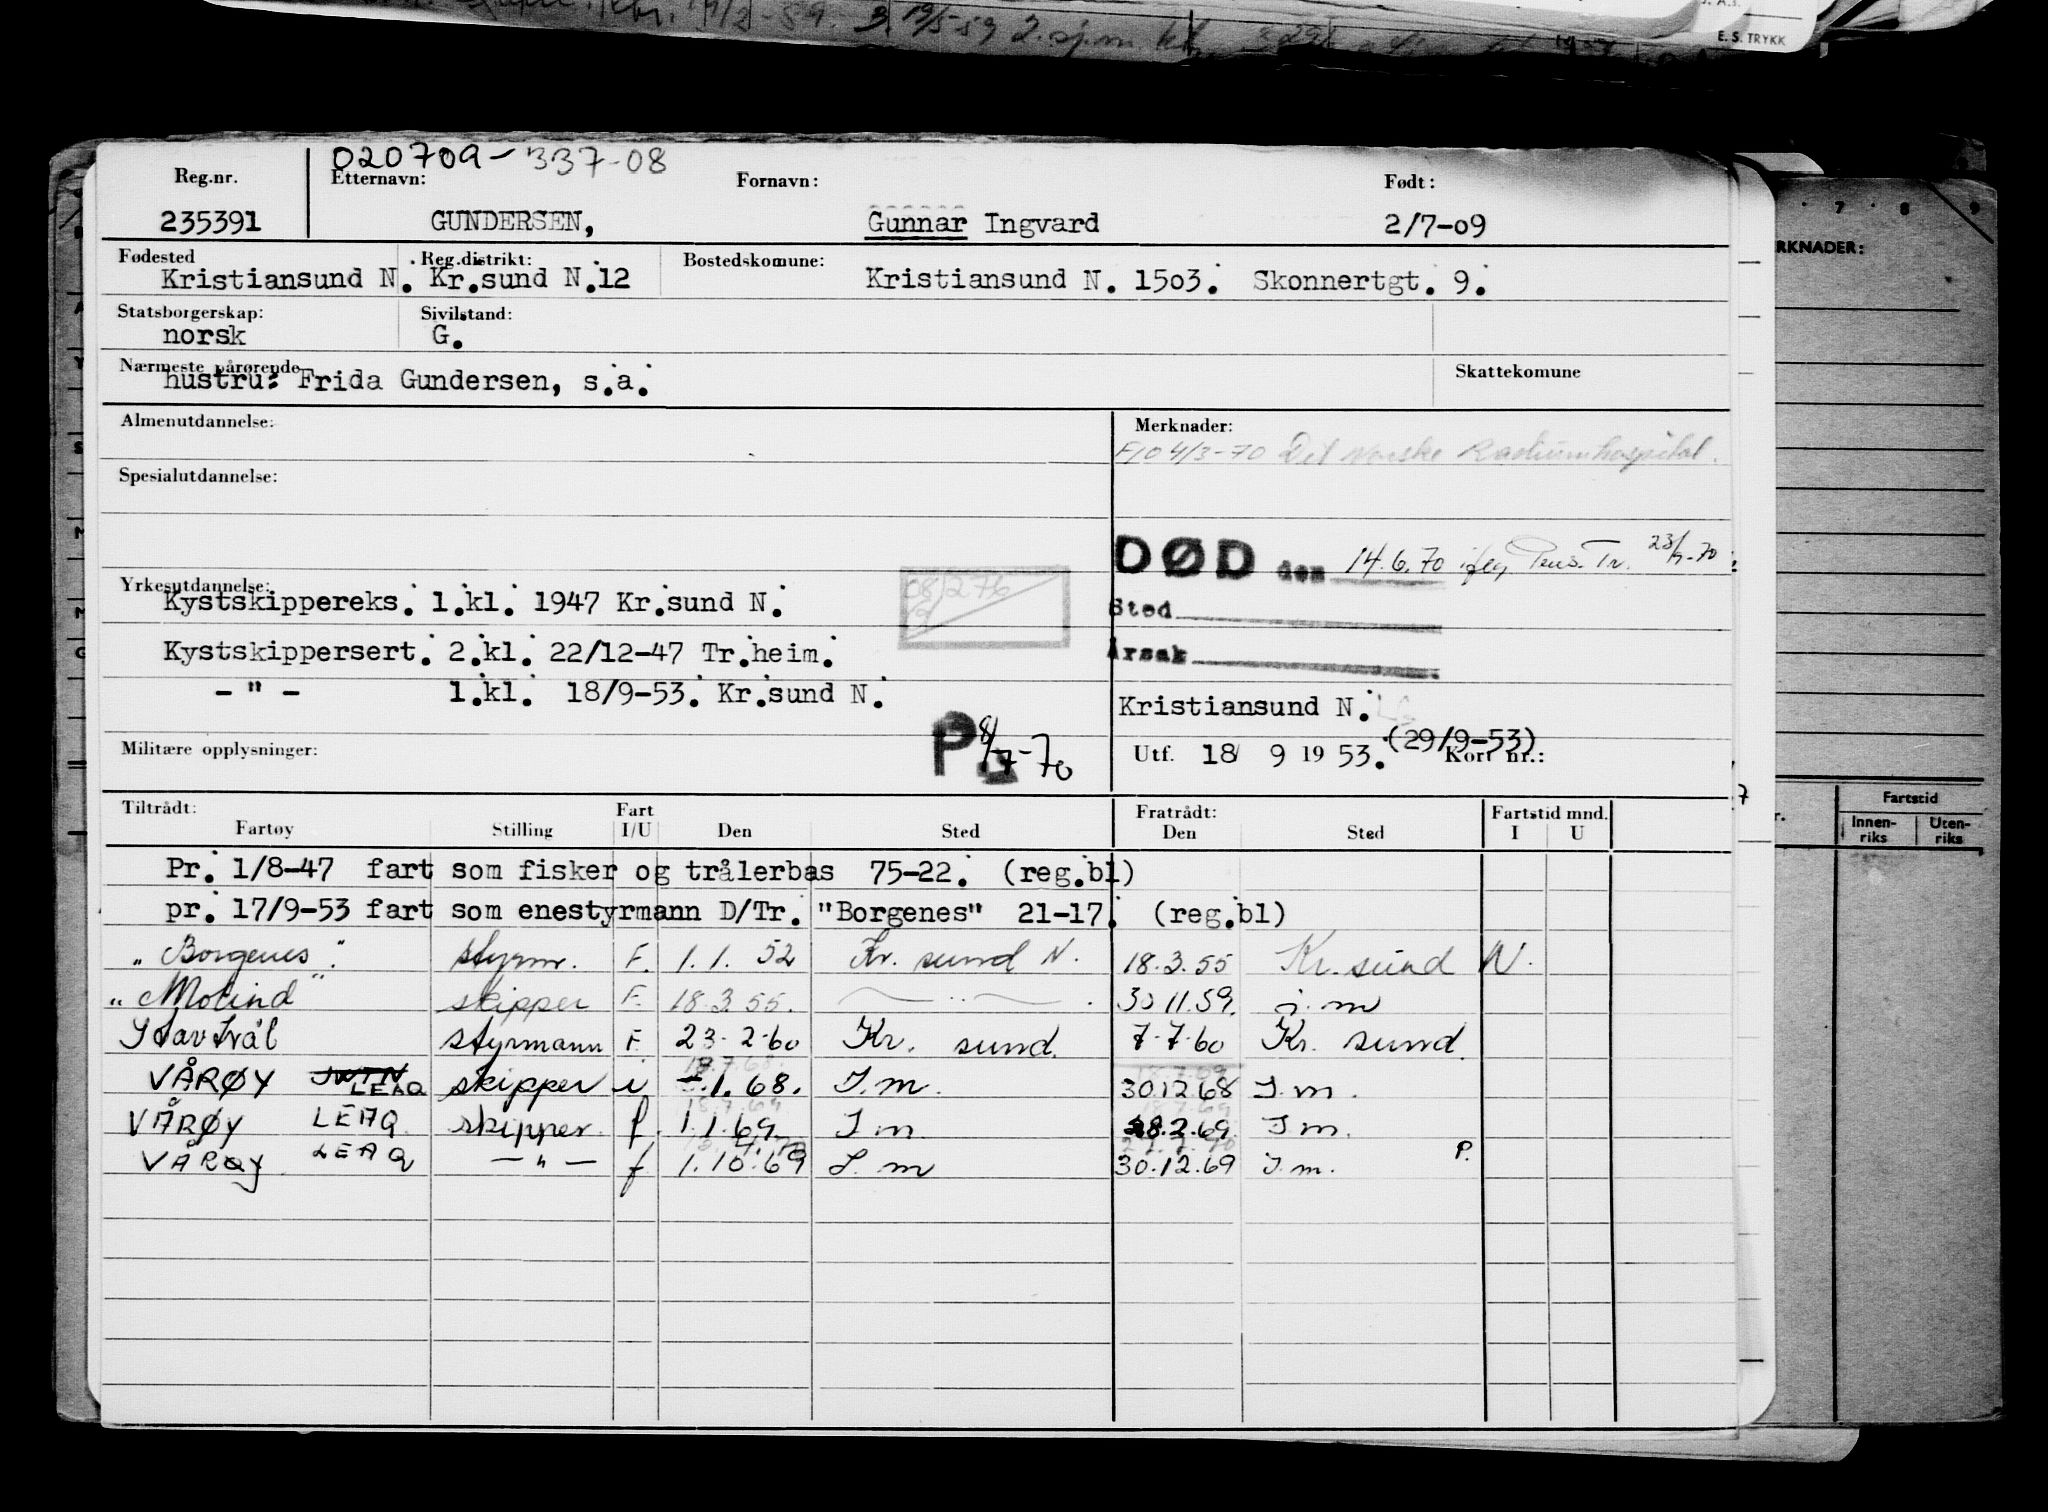 E. S. TRYKK
020709-337-08
Reg.nr. Etternavn: Fornavn: Født:
235391 GUNDERSEN, Gunnar Ingvard 2/7-09
Fødested Reg.distrikt: Bostedskomune:
Kristiansund N. Kr.sund N.12 Kristiansund N. 1503. Skonnertgt. 9.
Statsborgerskap: Sivilstand:
norsk G.
Nærmeste pårørende Skattekomune
hustru: Frida Gundersen, s.a.
Almenutdannelse: Merknader:
4/3-70 Det Norske Radiumhospital.
Spesialutdannelse:
DØD den 14.6.70 ifлg Pens. Tr. 23/7-70
Yrkesutdannelse: Sted
Kystskippereks. 1.kl. 1947 Kr.sund N.
08/276
Kystskippersert. 2.kl. 22/12-47 Tr.heim. Årsak
- " - 1.kl. 18/9-53. Kr.sund N. Kristiansund N.
Militære opplysninger: P 8/7-70 Utf. 18/ 9 1953. (29/9-53) Kort nr.:
Tiltrådt: Fart Fratrådt: Fartstid mnd.
Fartøy Stilling I/U Den Sted Den Sted I U
Pr. 1/8-47 fart som fisker og trålerbas 75-22. (reg.bl)
pr. 17/9-53 fart som enestyrmann D/Tr. "Borgenes" 21-17. (reg.bl)
"Borgenes". styrm. F. 1.1.52 Kr. sund N. 18.3.55 Kr. sund N.
"Molind" skipper F. 18.3.55. — " — . 30.11.59. i.m
Stavtrål styrmann F. 23-2-60 Kr. sund. 7-7-60 Kr. sund.
VÅRØY LEAQ skipper i -.1.68. I.m. 30.12.68 I.m.
VÅRØY LEAQ skipper. f. 1.1.69 I.m 28.2.69. I.m.
VÅRØY LEAQ — " — f 1.10.69 I.m 30.12.69 I.m. P.
7 8 9
RKNADER:
Fartstid
Innen-riks Uten-riks